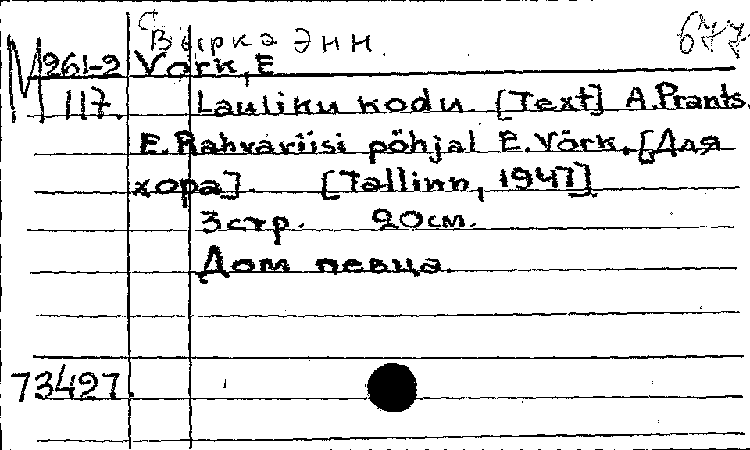 Вырка Энн. 677
М 261-2 Võrk, E
117. Lauliku kodu. [Text] A. Prants.
E. Rahvaviisi põhjal E. Võrk. [Для
хора]. [Tallinn, 1947]
3 стр. 20 см.
Дом певца.
73427.